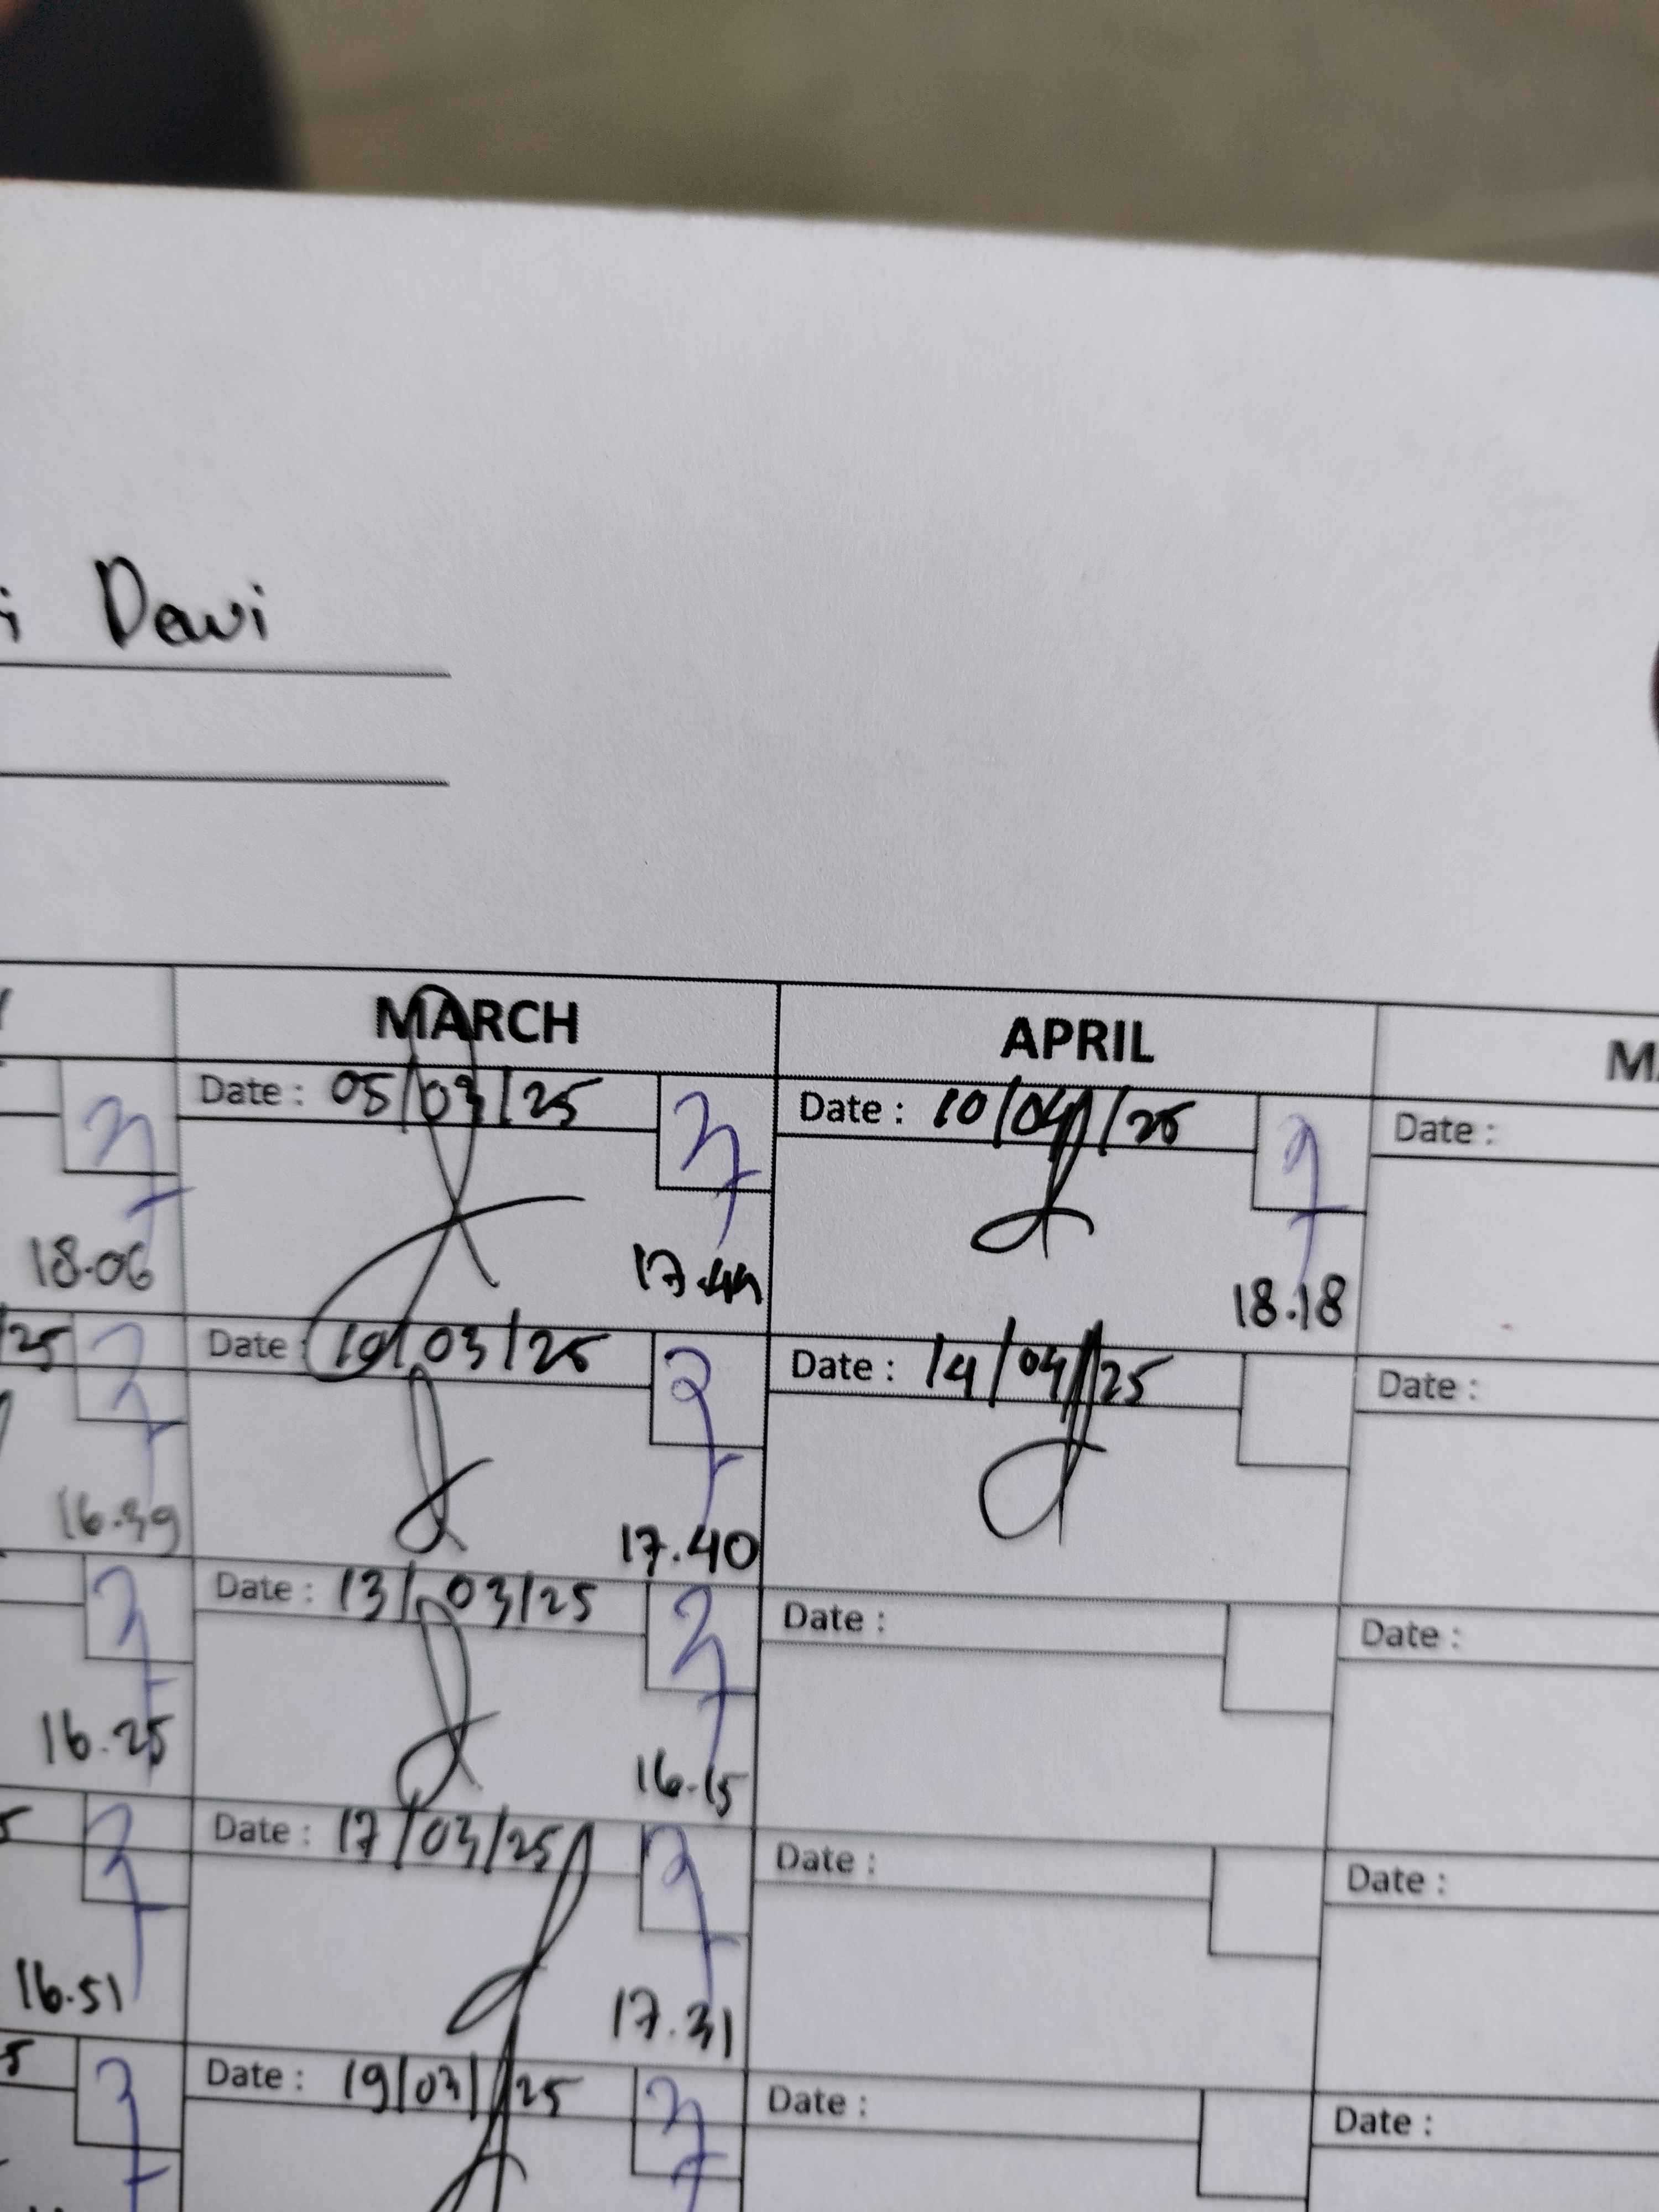 Dewi
MARCH APRIL
Date : 05/03/25 Date : 10/04/25 Date :
18.06 17.44 18.18
Date : 10/03/25 Date : 14/04/25 Date :
16.39 17.40
Date : 13/03/25 Date : Date :
16.25 16.15
Date : 17/03/25 Date : Date :
16.51 17.31
Date : 19/03/25 Date : Date :